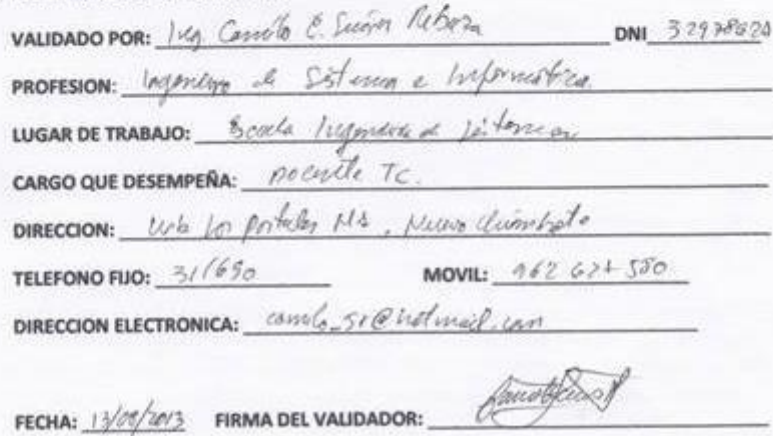 VALIDADO POR: Ing. Camilo E. Suárez Rebaza DNI 32978620
PROFESION: Ingeniero de Sistema e Informática.
LUGAR DE TRABAJO: Escuela Ingeniería de Sistemas
CARGO QUE DESEMPEÑA: Docente TC.
DIRECCION: Urb Los Portales , Nuevo Chimbote
TELEFONO FIJO: 311690 MOVIL: 962 624 580
DIRECCION ELECTRONICA: camilo_sr@hotmail.com
FECHA: 13/09/2013 FIRMA DEL VALIDADOR: